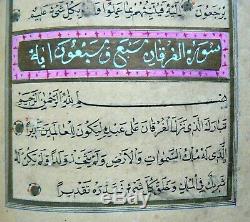 يرجعون بما عملوا عليم
سورة الفرقان سبع و سبعون اية
بسم الله الرحمن الرحيم
تبارك الذي نزل الفرقان على عبده ليكون للعالمين نذيرا
الذي له ملك السموات والارض ولم يتخذ ولدا ولم يكن له
شريك في الملك وخلق كل شيء فقدره تقديرا